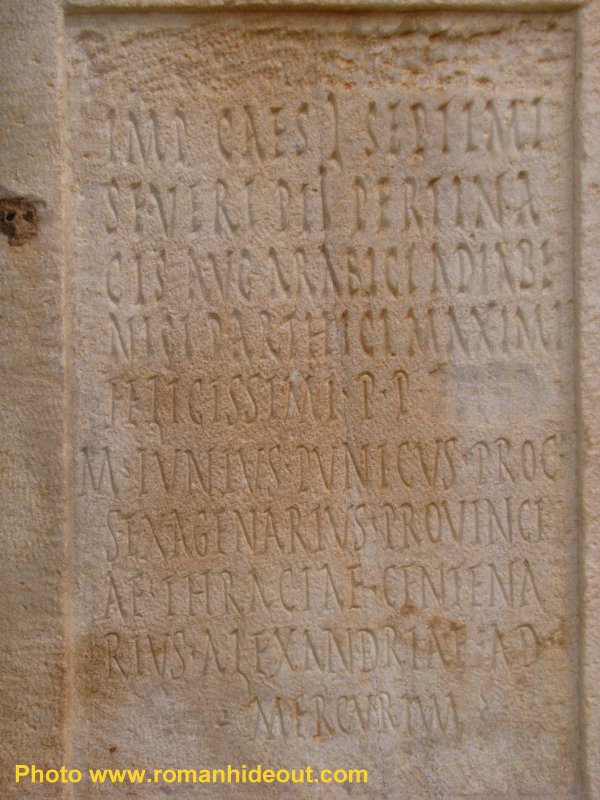 IMP CAES L SEPTIMI
SEVERI PII PERTINA
CIS AVG ARABICI ADIABE
NICI PARTHICI MAXIMI
FELICISSIMI · P · P
M · IVNIVS · PVNICVS · PROC ·
SEXAGENARIVS · PROVINCI
AE · THRACIAE · CENTENA
RIVS · ALEXANDRIAE AD
MERCVRIVM
Photo www.romanhideout.com